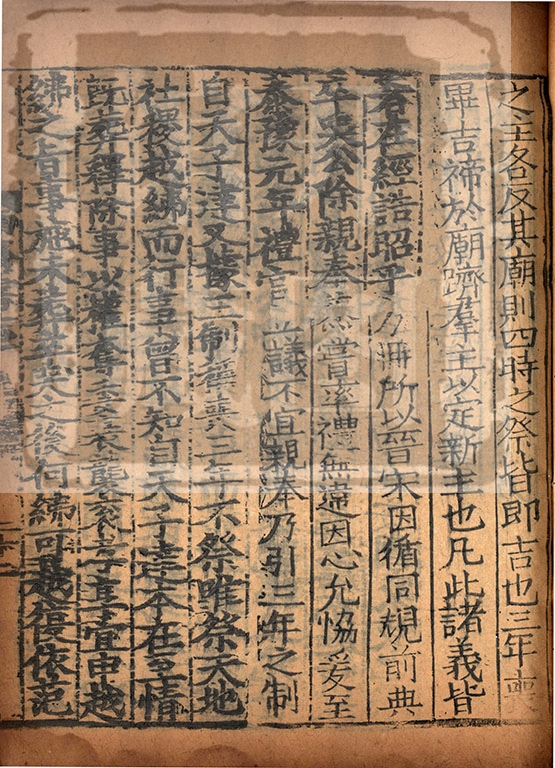 之主各反其廟則四時之祭皆即吉也三年喪
畢吉禘於廟躋羣主以定新主也凡此諸義皆
著在經誥昭乎方冊所以晉宋因循同規前典
卒哭公除親奉烝嘗率禮無違因心允恊爰至
泰豫元年禮官立議不宜親奉乃引三年之制
自天子達又據王制稱喪三年不祭唯祭天地
社稷越紼而行事曾不知自天子達本在至情
既葬釋除事以權奪委衰襲衮孝享宜申越
紼之旨事施未葬卒哭之後何紼可越復依范